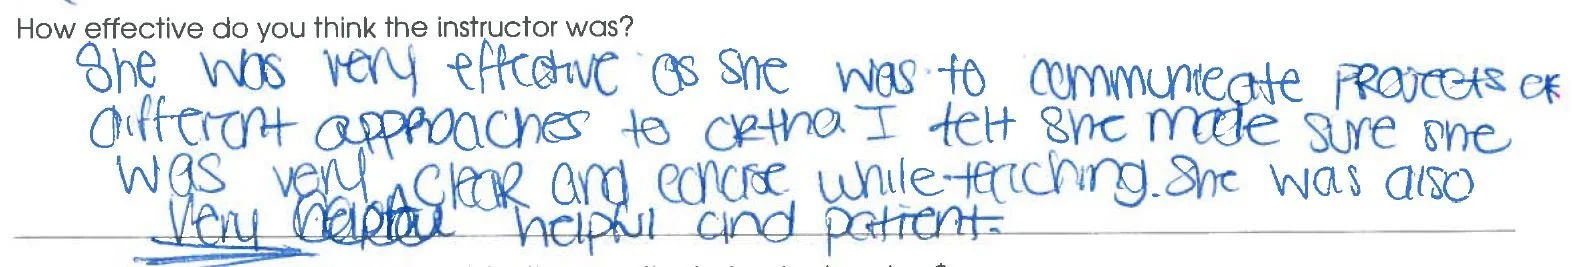 How effective do you think the instructor was?
She was very effective as she was to communicate PROJECTS OR
different approaches to I felt she made sure she
was very clear and concise while teaching. She was also
very helpful and patient.